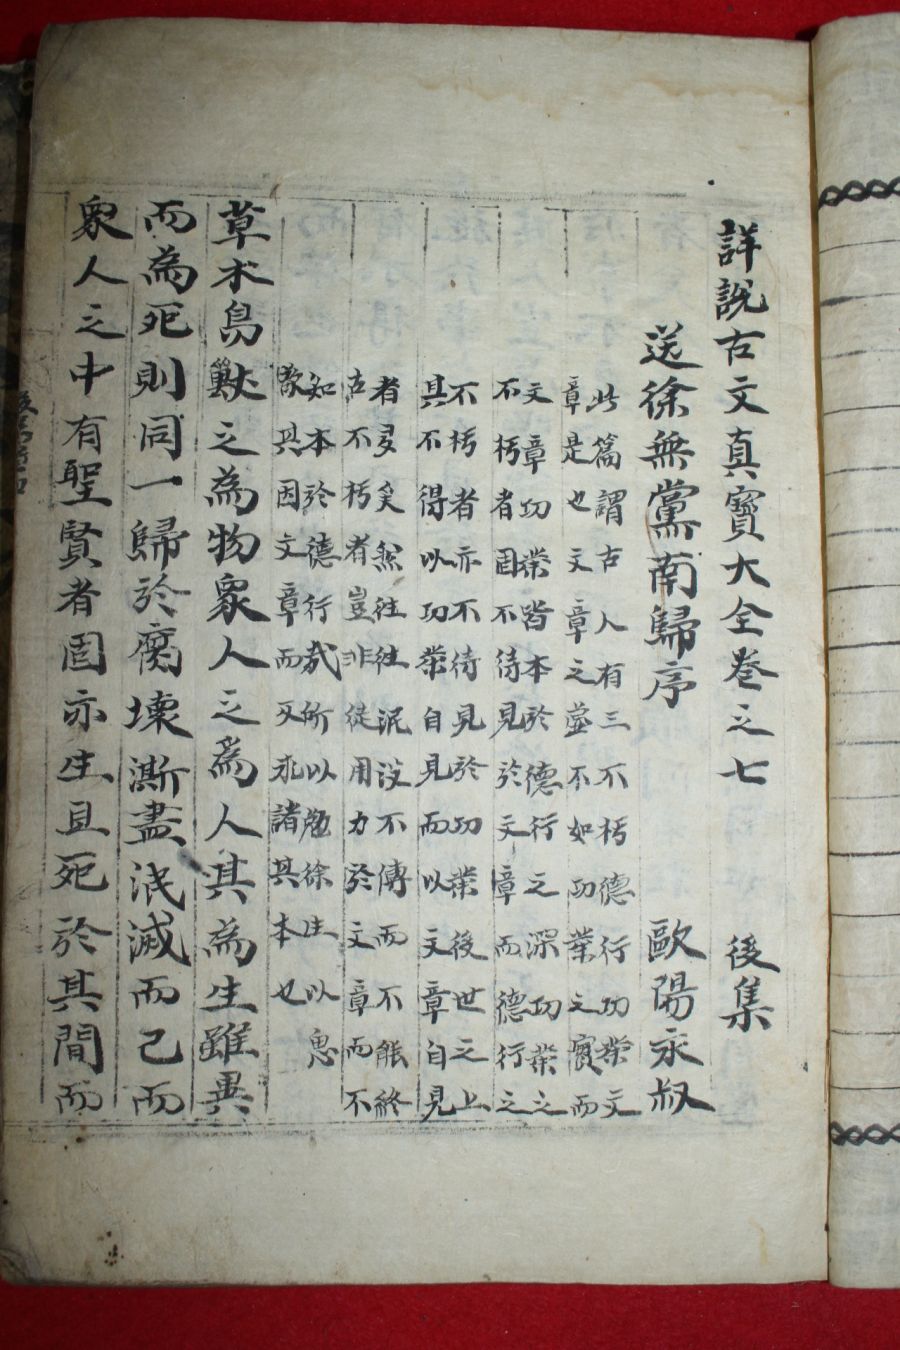 詳說古文真寶大全卷之七　後集
送徐無黨南歸序　歐陽永叔
此篇謂古人有三不朽德行功業文
章是也文章之盛不如功業之實而
文章功業皆本於德行之深功業之
不朽者固不待見於文章而德行之
不朽者亦不待見於功業後世之上
具不得以功業自見而以文章自見
者多矣然往往泯沒不傳而不能終
古不朽者豈非徒用力於文章而不
知本於德行哉所以勉徐生以思
其因文章而反求諸其本也
草木鳥獸之為物衆人之為人其為生雖異
而為死則同一歸於腐壞澌盡泯滅而已而
衆人之中有聖賢者固亦生且死於其間而